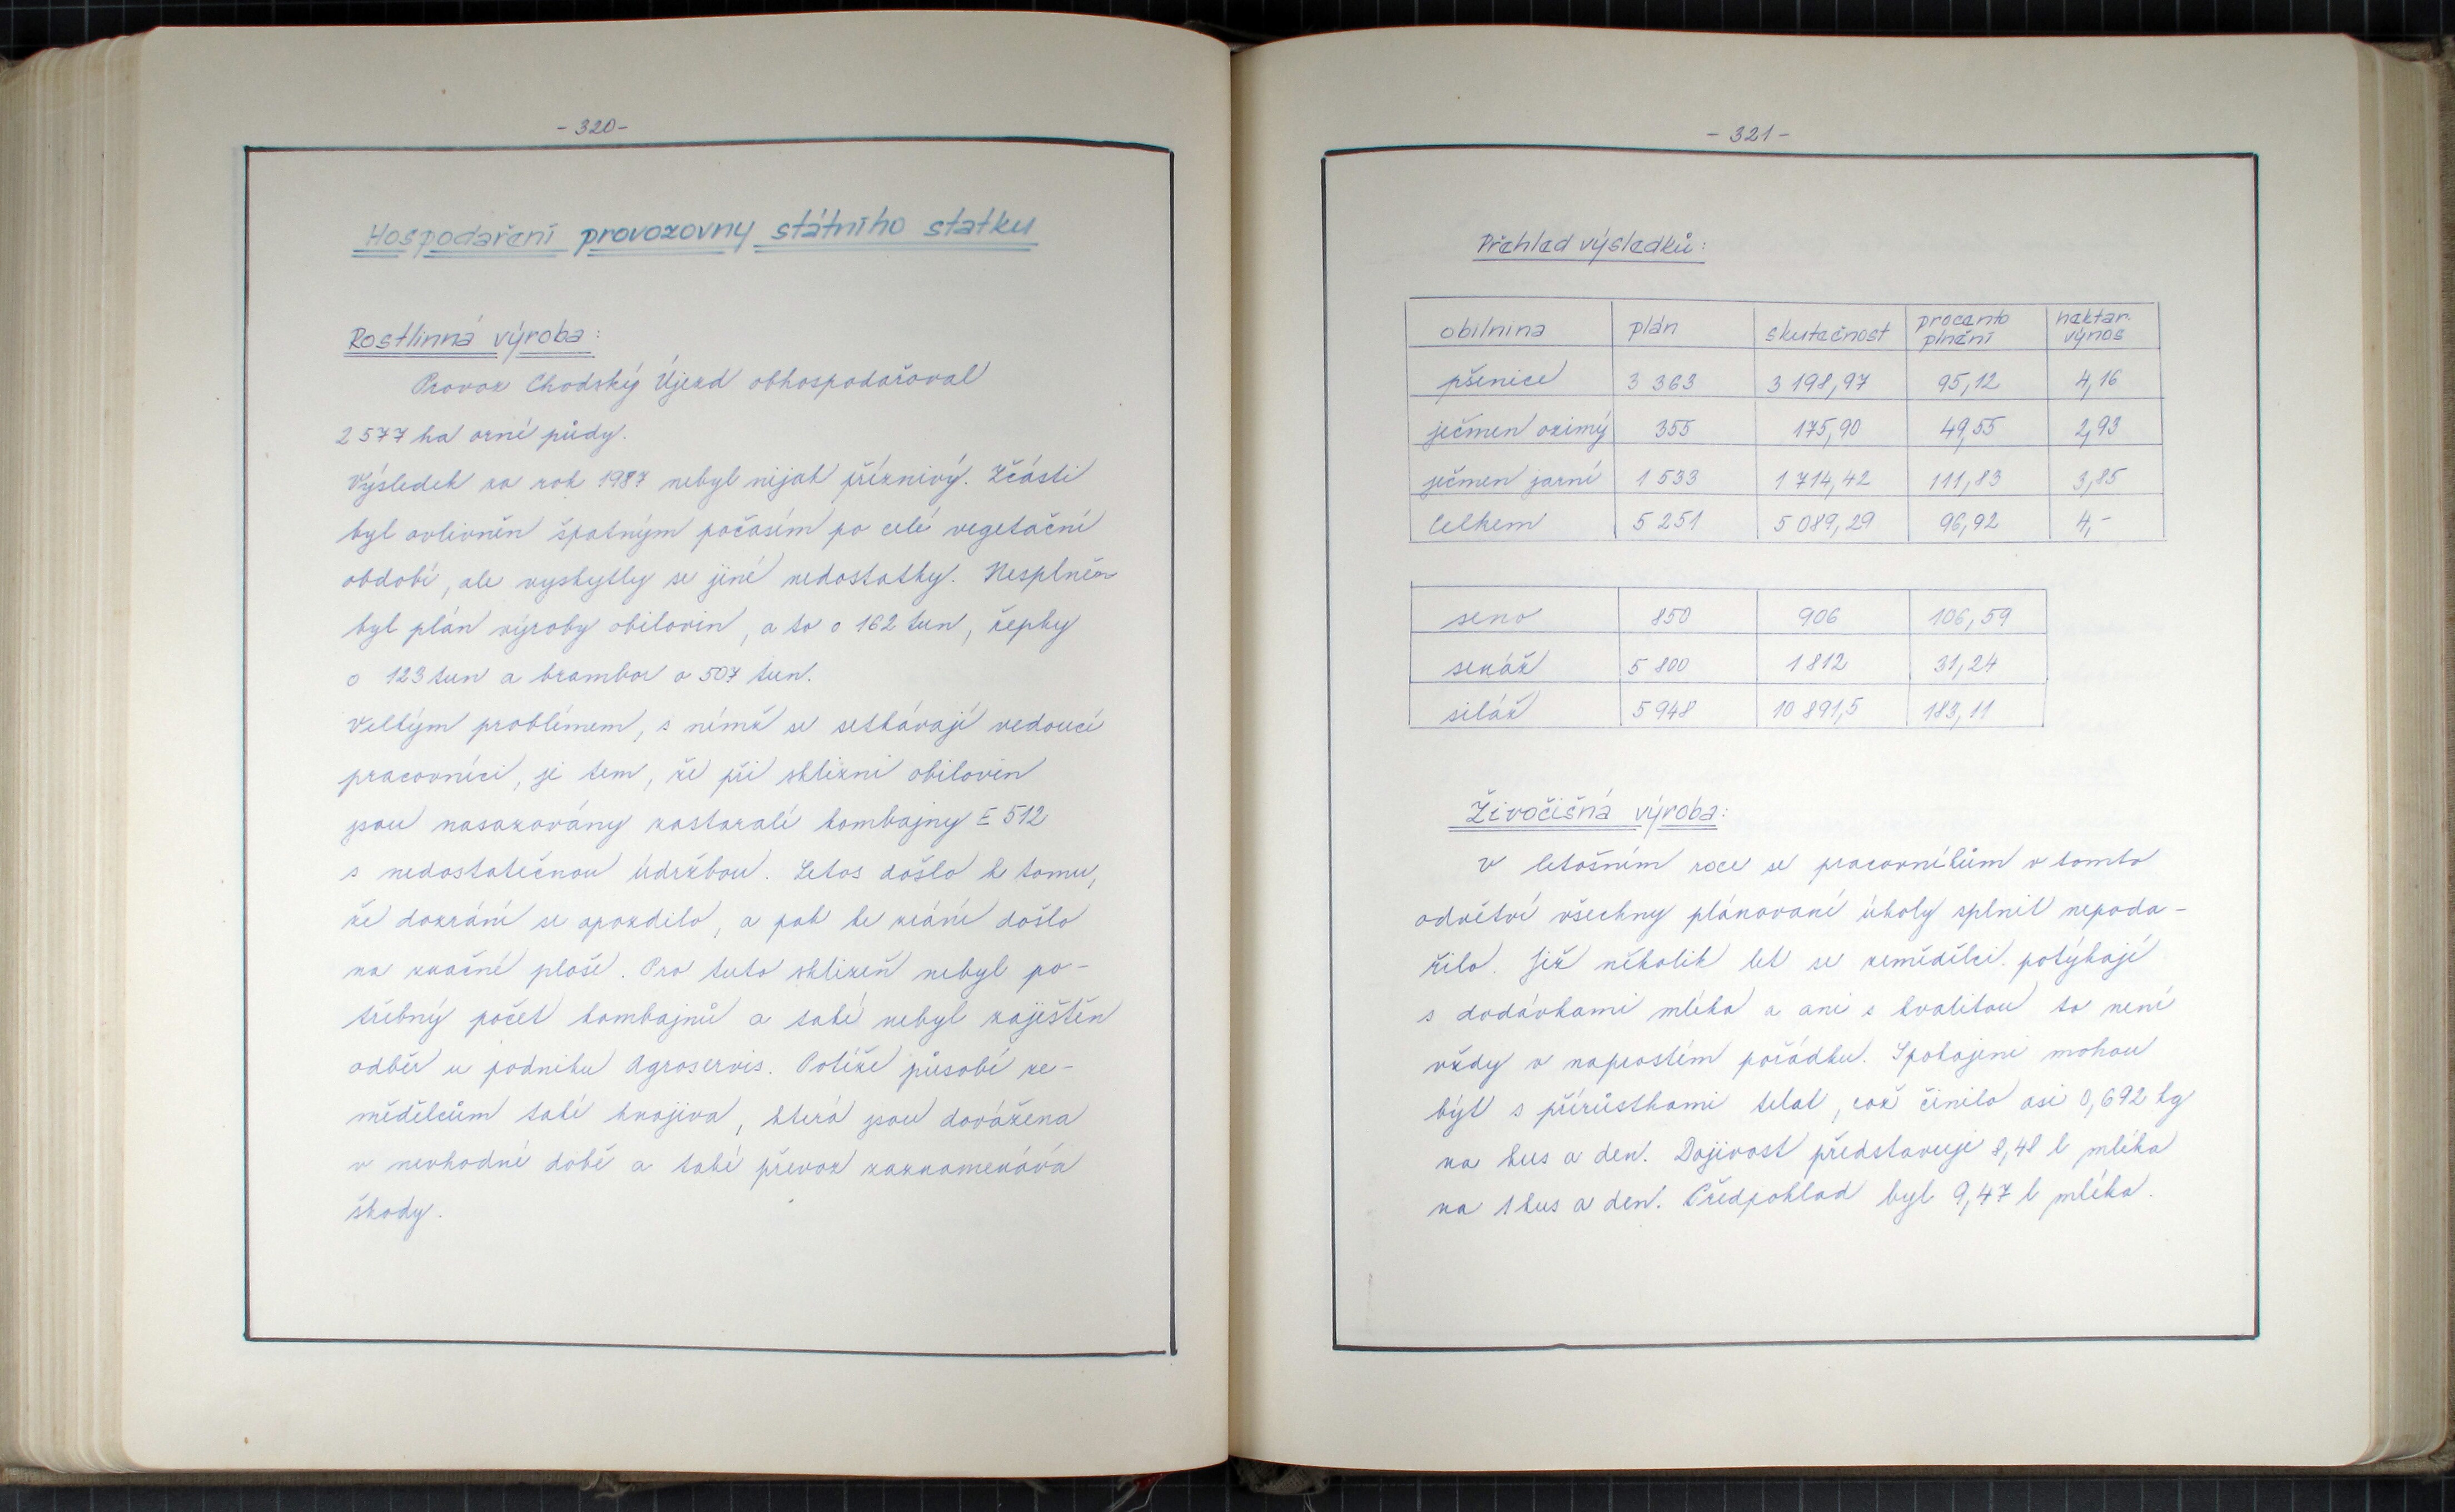 - 320 -
Hospodaření provozovny státního statku
Rostlinná výroba:
Provoz Chodský Újezd obhospodařoval
2 577 ha orné půdy.
Výsledek za rok 1987 nebyl nijak příznivý. Zčásti
byl ovlivněn špatným počasím po celé vegetační
období, ale vyskytly se jiné nedostatky. Nesplněn
byl plán výroby obilovin, a to o 162 tun, řepky
o 123 tun a brambor o 507 tun.
Velkým problémem, s nímž se setkávají vedoucí
pracovníci, je ten, že při sklizni obilovin
jsou nasazovány zastaralé kombajny E 512
s nedostatečnou údržbou. Letos došlo k tomu,
že dozrání se opozdilo, a pak ke zrání došlo
na značné ploše. Pro tuto sklizeň nebyl po-
třebný počet kombajnů a také nebyl zajištěn
odběr u podniku Agroservis. Potíže působí ze-
mědělcům také hnojiva, která jsou dovážena
v nevhodné době a také převoz zaznamenává
škody.
- 321 -
Přehled výsledků:
obilnina plán skutečnost procento plnění hektar. výnos
pšenice 3 363 3 198,97 95,12 4,16
ječmen ozimý 355 175,90 49,55 2,93
ječmen jarní 1 533 1 714,42 111,83 3,85
Celkem 5 251 5 089,29 96,92 4,-
seno 850 906 106,59
senáž 5 800 1 812 31,24
siláž 5 948 10 891,5 183,11
Živočišná výroba:
V letošním roce se pracovníkům v tomto
odvětví všechny plánované úkoly splnit nepoda-
řilo. Již několik let se zemědělci potýkají
s dodávkami mléka a ani s kvalitou to není
vždy v naprostém pořádku. Spokojeni mohou
být s přírůstkami telat, což činilo asi 0,692 kg
na kus a den. Dojivost představuje 8,48 l mléka
na 1 kus a den. Předpoklad byl 9,47 l mléka.